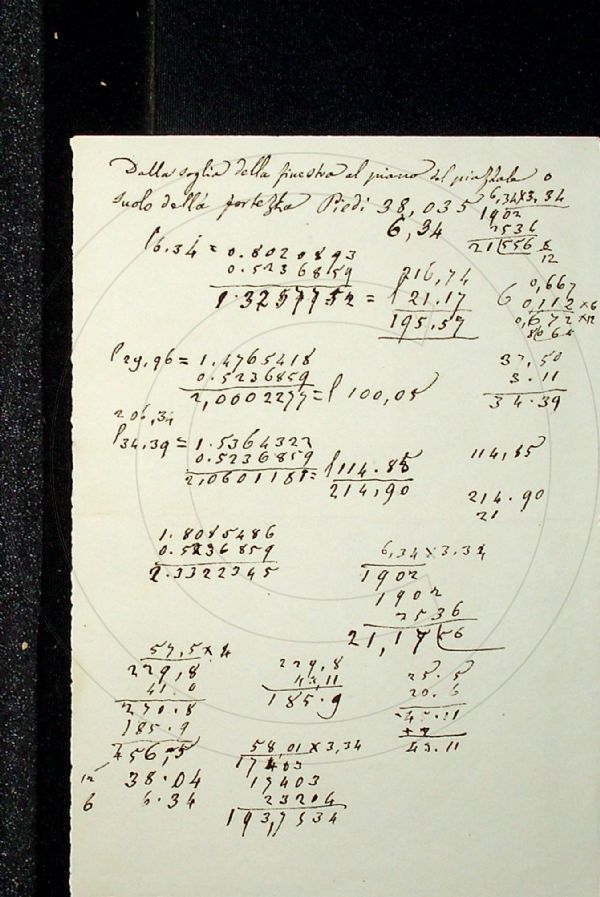 Dalla soglia della finestra al piano del piazzale o
suolo della fortezza Piedi 38,035
6,34
6,34 x 3,34
1902
2536
21,556 8
12
l 6.34 = 0.8020893
0.5236859
1.3257752 =
216,74
21.17
195.57
0,667
6 0,112 x 6
0,672 x 12
8064
l 29,96 = 1.4765418
0.5236859
2,0002277 = l 100,05
37,50
3.11
34.39
206,34
l 34,39 = 1.5364322
0.5236859
2,0601181 = l 114.85
214,90
114,85
214.90
21
1.8085486
0.5236859
2.3322345
6,34 x 3.34
1902
1902
2536
21,17 56
57,5 x 4
229,8
41.0
270.8
185.9
456,5
12 38.04
6 6.34
229,8
43,11
185.9
25.5
20.6
45.11
+ 2
43.11
58,01 x 3,34
17403
17403
23204
193,7534